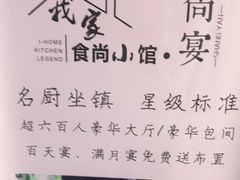 我家
I-HOME
KITCHEN
LEGEND
食尚小馆·
尚宴
SHANG YAN
名厨坐镇 星级标准
超六百人豪华大厅/豪华包间
百天宴、满月宴免费送布置